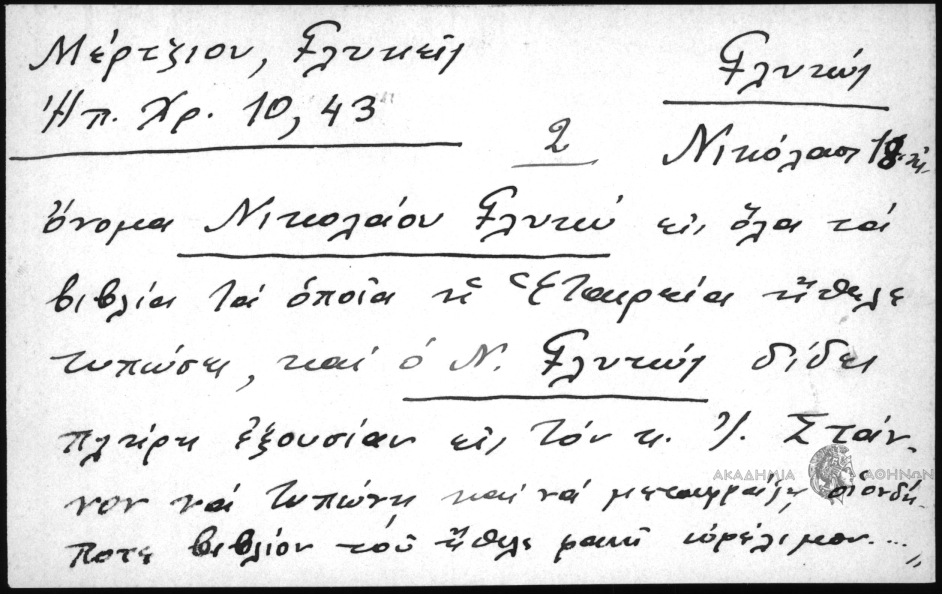 Μέρτζιου, Γλυκεῖς
Ἠπ. Χρ. 10, 43
Γλυκύς
2
Νικόλαος 18
ὄνομα Νικολάου Γλυκύ εἰς ὅλα τά
βιβλία τά ὁποῖα ἡ Ἑταιρεία ἤθελε
τυπώσει, καί ὁ Ν. Γλυκύς δίδει
πλήρη ἐξουσίαν εἰς τόν κ. Ἰ. Στάν-
νον νά τυπώνη καί νά μεταφράζη οἱονδή-
ποτε βιβλίον τοῦ ἤθελε φανῆ ὠφέλιμον...."
ΑΚΑΔΗΜΙΑ ΑΘΗΝΩΝ